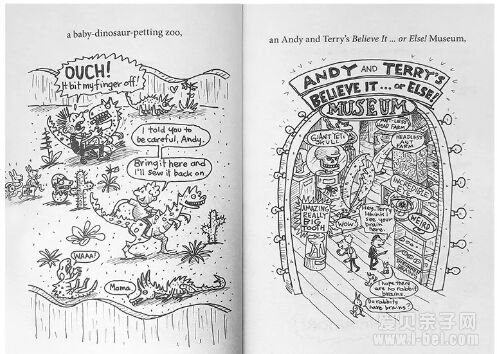 a baby-dinosaur-petting zoo,
OUCH!
It bit my finger off!
I told you to
be careful, Andy.
Bring it here and
I'll sew it back on.
WAAA!
Mama
an Andy and Terry's Believe It ... or Else! Museum,
ANDY AND TERRY'S
BELIEVE IT ... or ELSE!
MUSEUM
GIANT YETI
SKULL
HEADLESS
ANT
FARM
WEIRD
AMAZING
REALLY
BIG
TOOTH
WOW!
Hey, Terry,
I think I
see your
brain
here.
I hope there
are no rabbit
brains.
Do rabbits
have brains?
www.i-bei.com